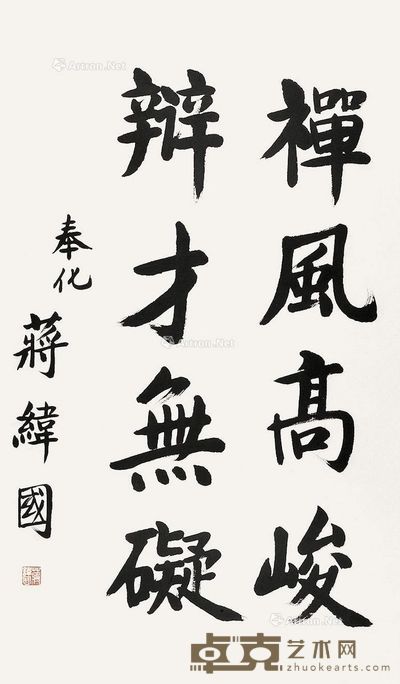 禪風高峻
辯才無礙
奉化
蔣緯國
Artron.Net
Artron.Net
Artron.Net
卓克艺术网
zhuokearts.com